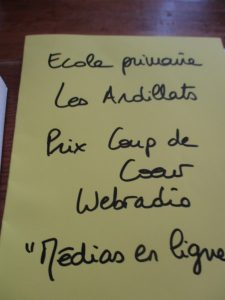 Ecole primaire
Les Ardillats
Prix Coup de
Coeur
Webradio
"Médias en ligne